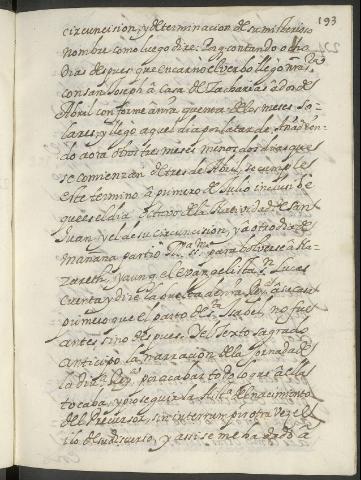 193
circuncision, y determinacion de su misterioso
nombre como luego dire. Paq contando ocho
dias despues que encarno el verbo llego nra. Sra.
con san Joseph à casa de Zacharias à dos de
Abril conforme à nra quenta de los meses so-
lares; y llego aquel dia por la tarde. Añadien-
do aora otros tres meses menos dos dias que
se comienzan de tres de Abril, se cumple
este termino à primero de Julio inclusibe
que es el dia octavo de la Natividad de San
Juan, y el de su circuncision, y à otro dia de
mañana partio Ma. SSma. para bolverse à Na-
zareth. Y aunq. el evangelista Sn. Lucas
cuenta y dize la buelta de nra Reyna à su casa
primero que el parto de Sta. Isabel, no fue
antes sino despues. Y el texto sagrado
anticipo la narracion de la jornada de
la divina Reyna, para acabar todo lo que à ella
tocaba, y proseguir la hista. del nacimiento
del Precursor, sin interrumpir otra vez el
ilo de su discurso, y assi se me ha dado à